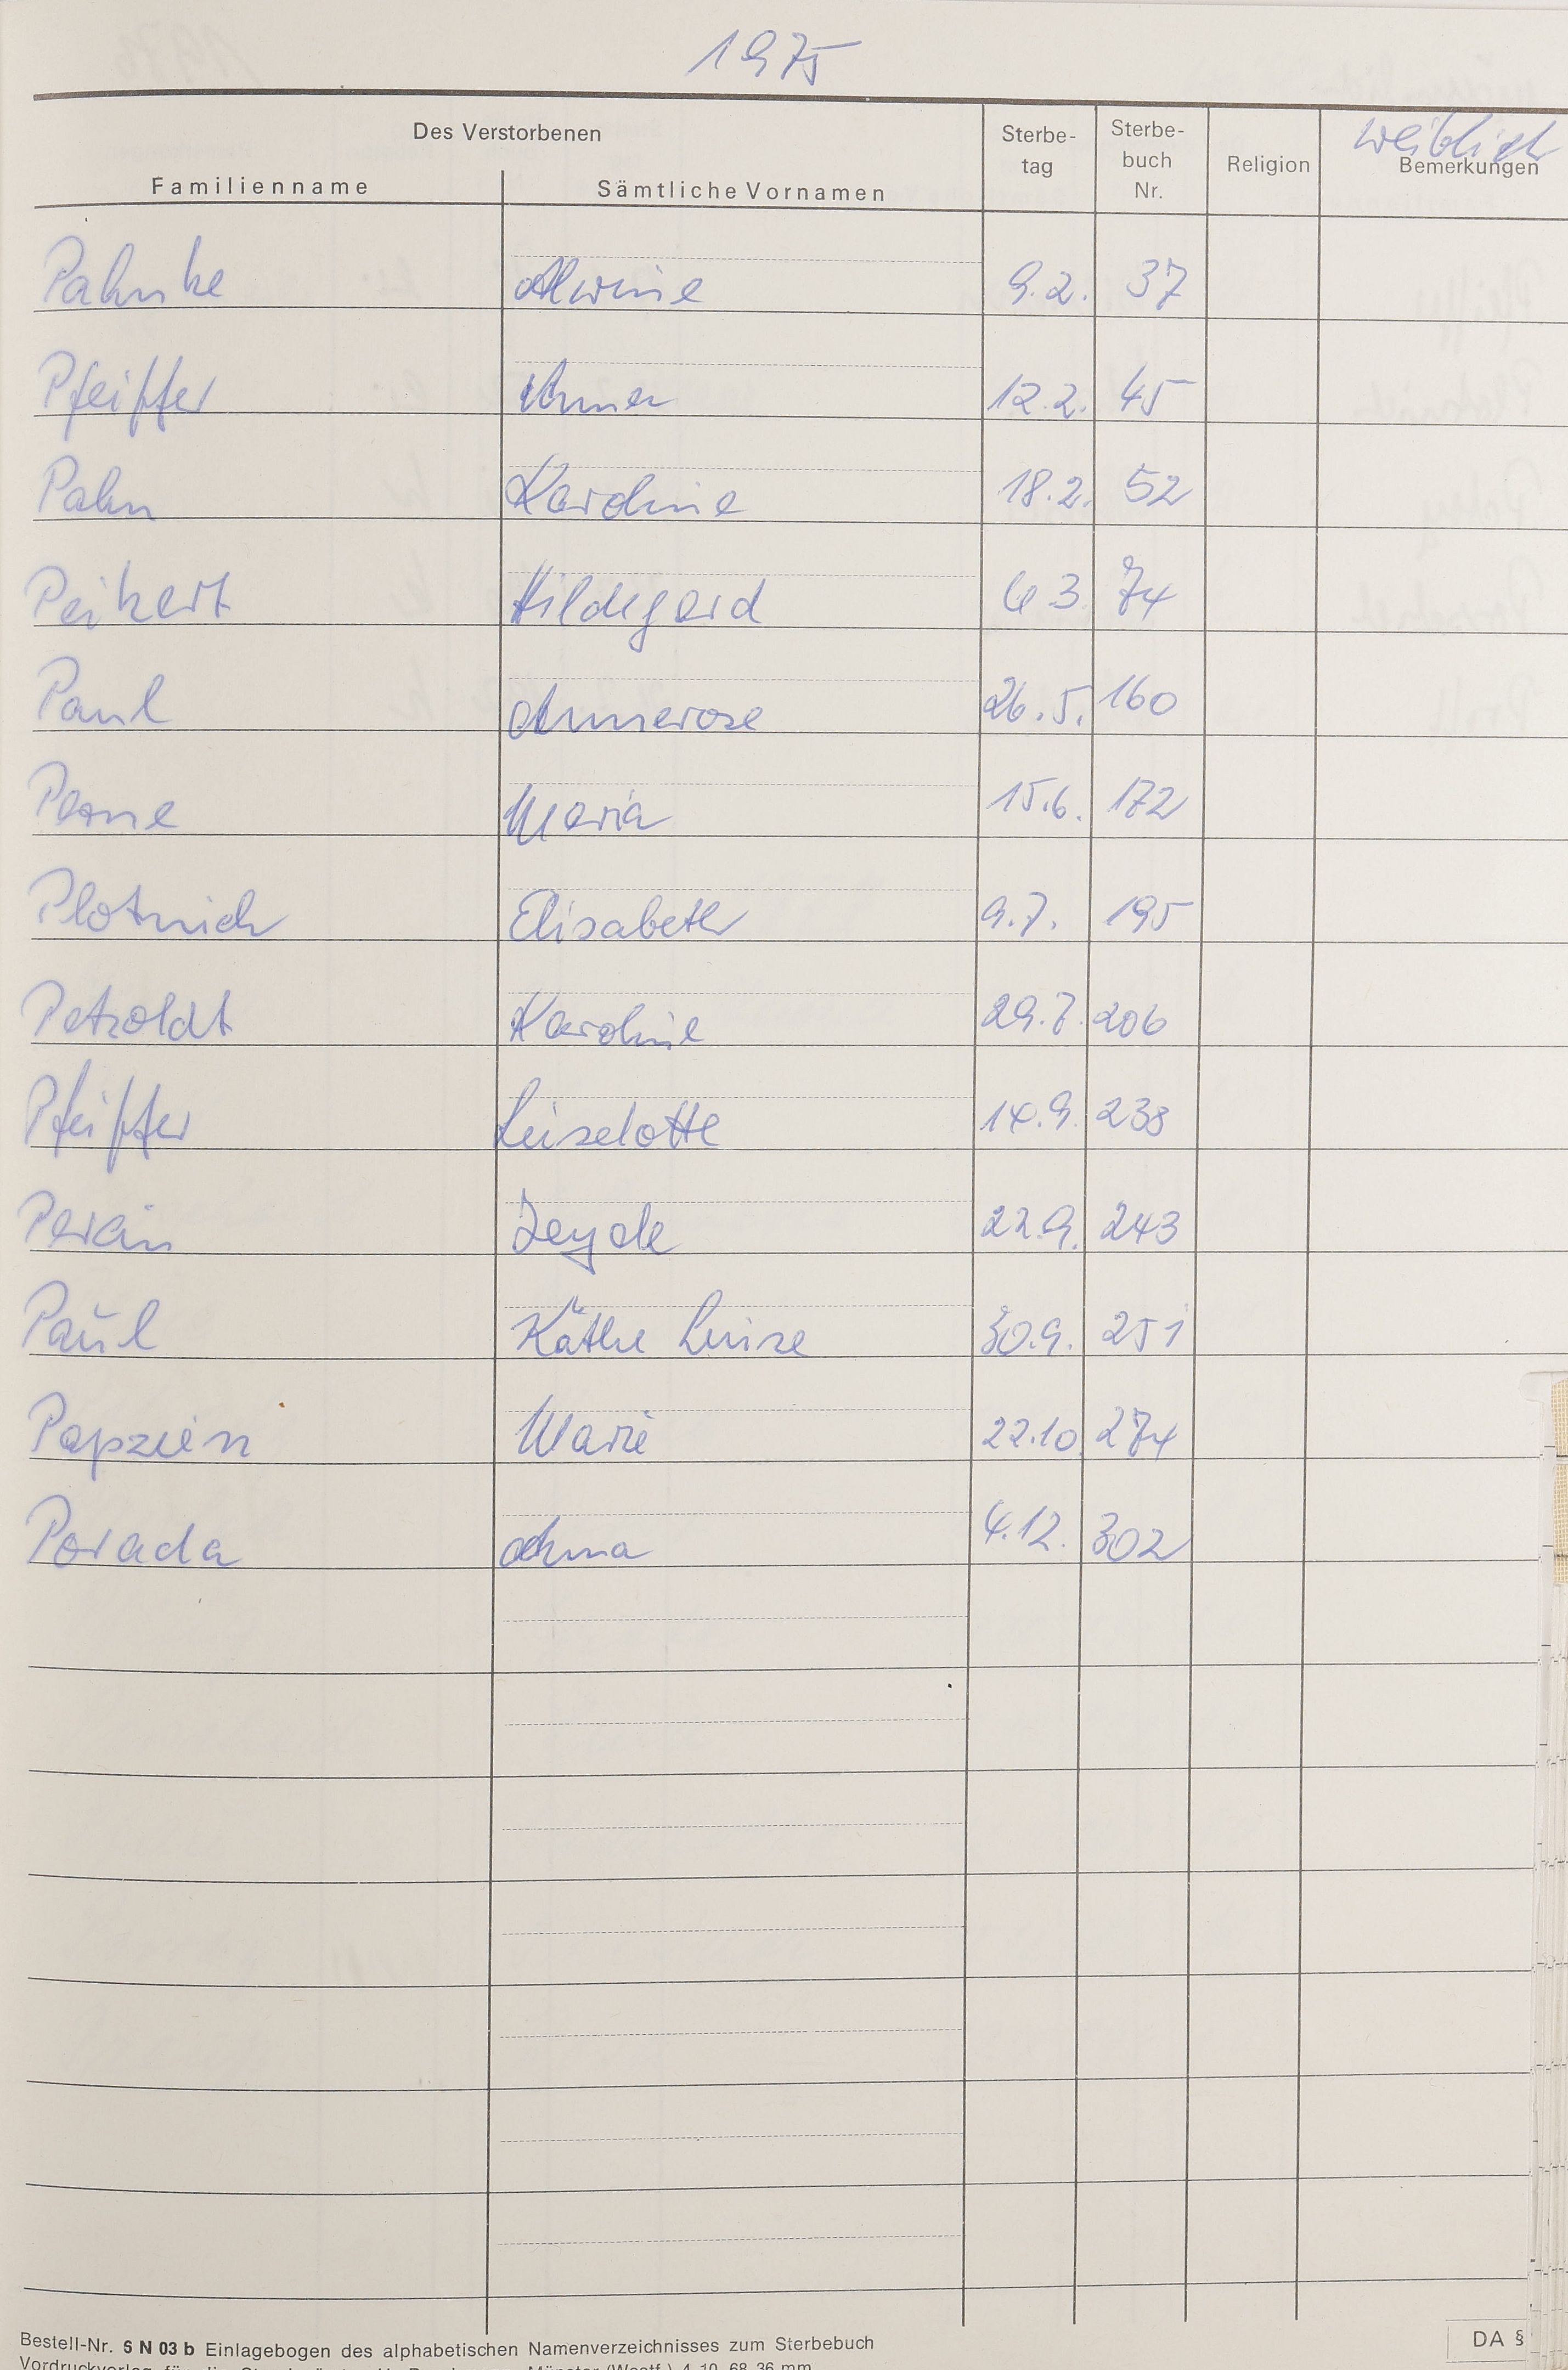 1975
Des Verstorbenen Sterbe- Sterbe- weiblich
tag buch Religion Bemerkungen
Familienname Sämtliche Vornamen Nr.
Pahnke Alwine 9.2. 37
Pfeiffer Anna 12.2. 45
Pahn Karoline 18.2. 52
Peikert Hildegard 6 3. 74
Paul Annerose 26.5. 160
Maria 15.6. 172
Plotnich Elisabeth 9.7. 195
Petzoldt Karoline 29.7. 206
Pfeiffer Leiselotte 14.9. 233
22.9. 243
Paul Käthe Luise 30.9. 251
Papzien Marie 22.10. 274
Porada Anna 4.12. 302
Bestell-Nr. 5 N 03 b Einlagebogen des alphabetischen Namenverzeichnisses zum Sterbebuch DA §